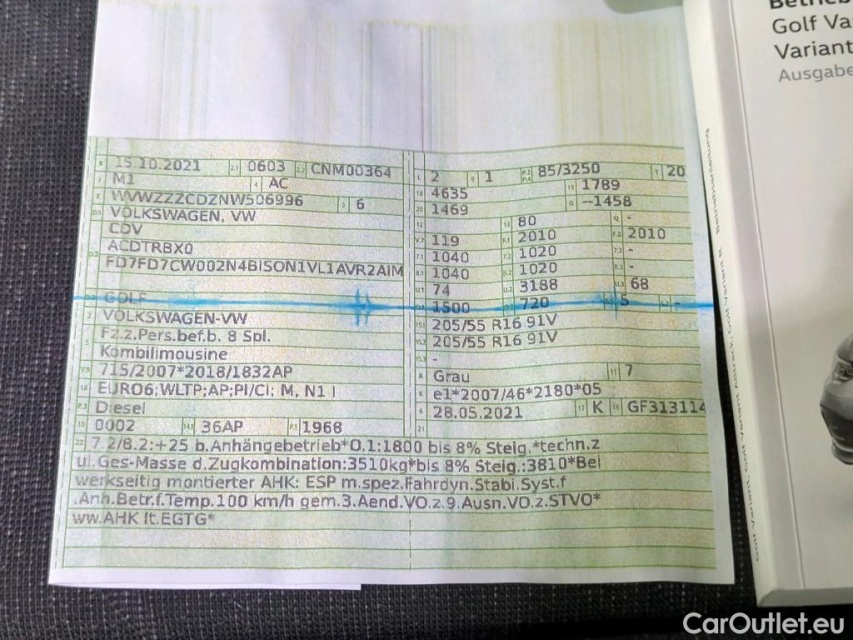 15.10.2021 0603 CNM00364 2 1 85/3250 20
M1 AC 4635 1789
WVWZZZCDZNW506996 6 1469 --1458
VOLKSWAGEN, VW 80 -
CDV 119 2010 2010
ACDTRBX0 1040 1020 -
FD7FD7CW002N4BISON1VL1AVR2AIM 1040 1020 -
74 3188 68
GOLF 1500 720 5 -
VOLKSWAGEN-VW 205/55 R16 91V
F2.2.Pers.bef.b. 8 Spl. 205/55 R16 91V
Kombilimousine -
715/2007*2018/1832AP Grau 7
EURO6;WLTP;AP;PI/CI; M, N1 I e1*2007/46*2180*05
Diesel 28.05.2021 K GF313114
0002 36AP 1968
7.2/8.2:+25 b.Anhängebetrieb*O.1:1800 bis 8% Steig.*techn.z
ul.Ges-Masse d.Zugkombination:3510kg*bis 8% Steig.:3810*Bei
werkseitig montierter AHK: ESP m.spez.Fahrdyn.Stabi.Syst.f
.Anh.Betr.f.Temp.100 km/h gem.3.Aend.VO.z.9.Ausn.VO.z.STVO*
ww.AHK lt.EGTG*
Golf Va
Variant
Ausgabe
CarOutlet.eu